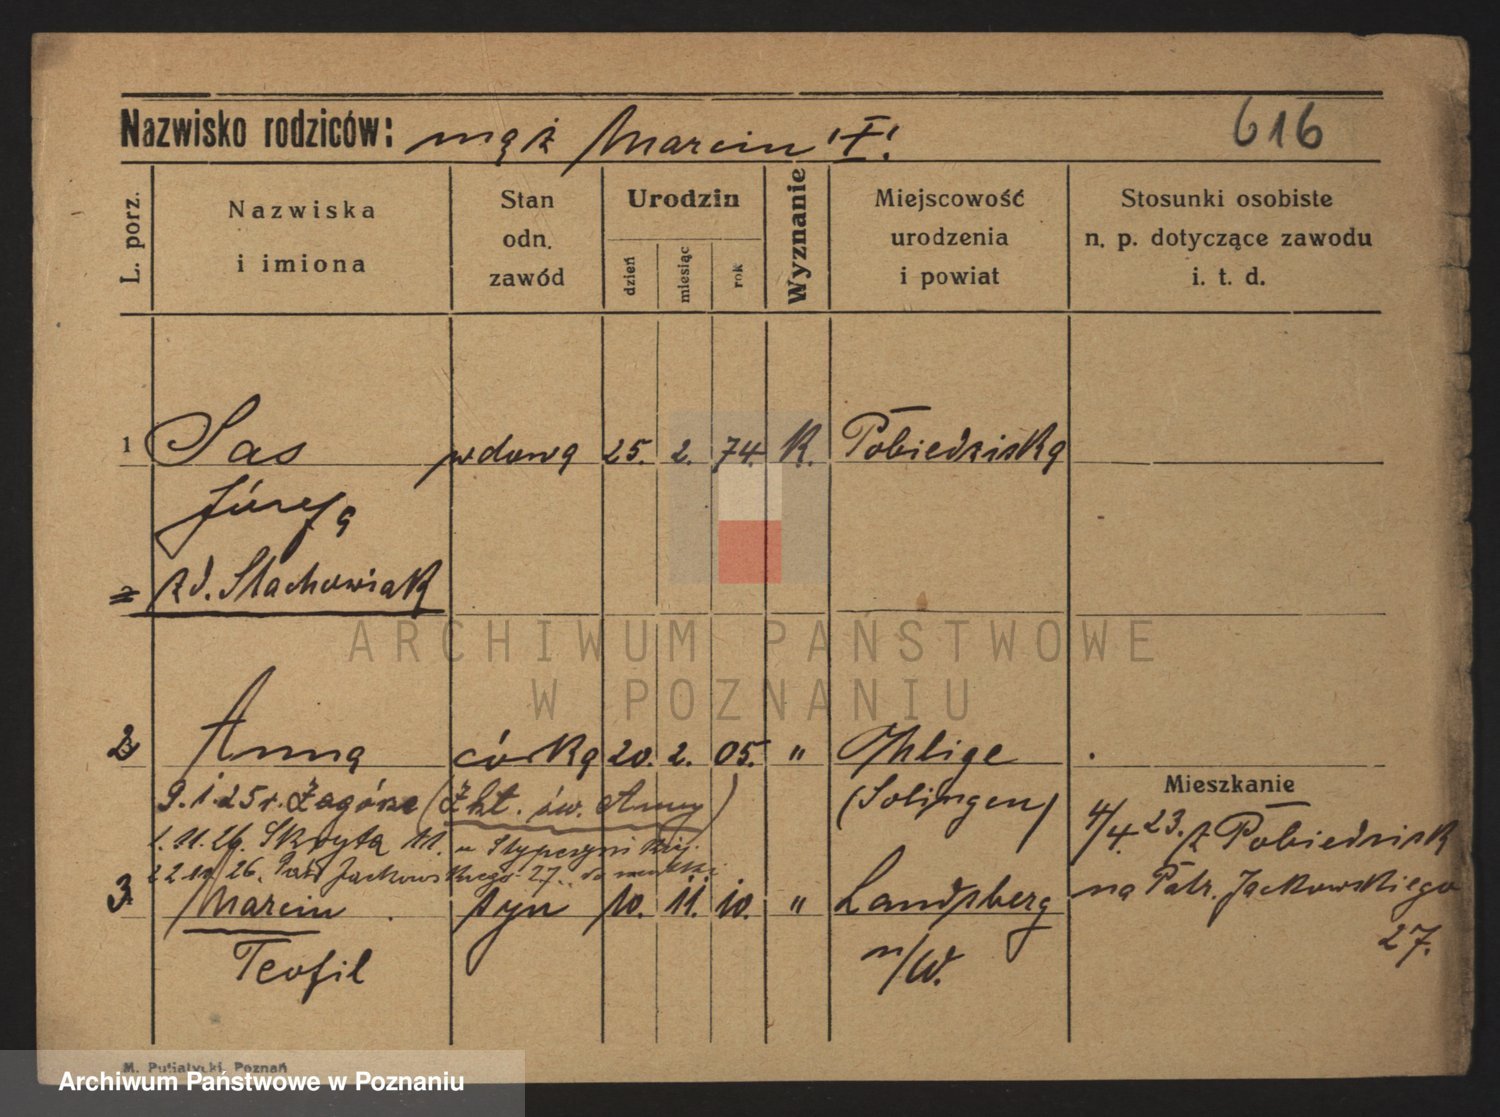 616
Nazwisko rodziców: mąż Marcin "I"!
L. porz.
Nazwiska
i imiona
Stan
odn.
zawód
Urodzin
dzień
miesiąc
rok
Wyznanie
Miejscowość
urodzenia
i powiat
Stosunki osobiste
n. p. dotyczące zawodu
i. t. d.
1 Sas wdowa 25. 2. 74. K. Pobiedziska
Józefa
zd. Stachowiak
2 Anna córka 20. 2. 05. " Ohlige
9.1.25 r. Zagórze (Zkł. św. Anny) (Solingen)
1.11.26. Skryta 11. u
26. Jackowskiego 27.
3 Marcin syn 10. 11. 10. " Landsberg
Teofil n/W.
Mieszkanie
4/4.23. z Pobiedzisk
na Patr. Jackowskiego
27.
M. Putiatycki, Poznań
ARCHIWUM PAŃSTWOWE
W POZNANIU
Archiwum Państwowe w Poznaniu